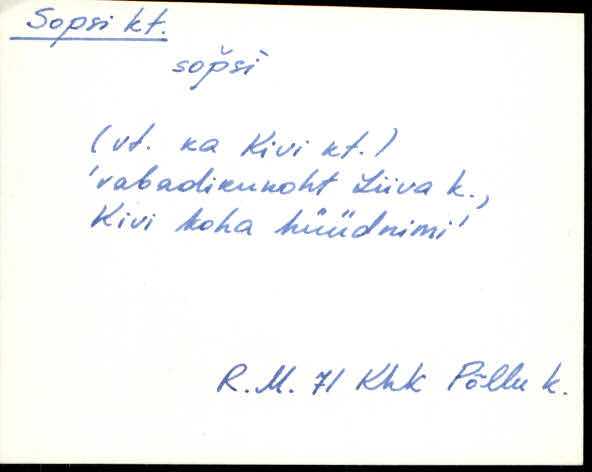 Sopsi kt.
sop̆si
(vt. ka Kivi kt.)
'vabadikukoht Liiva k.,
Kivi koha hüüdnimi'
R. M. 71 Khk Põllu k.